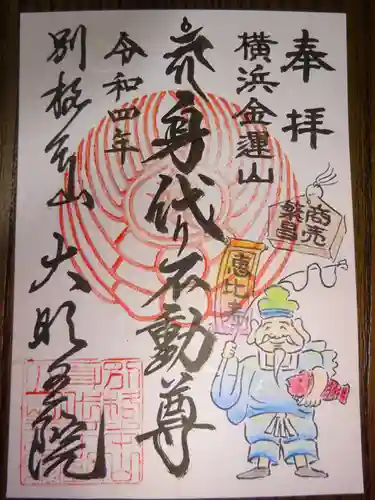 奉拝
横浜金運山
身代り不動尊
令和四年
別格本山 大明王院
商売
繁昌
恵比寿